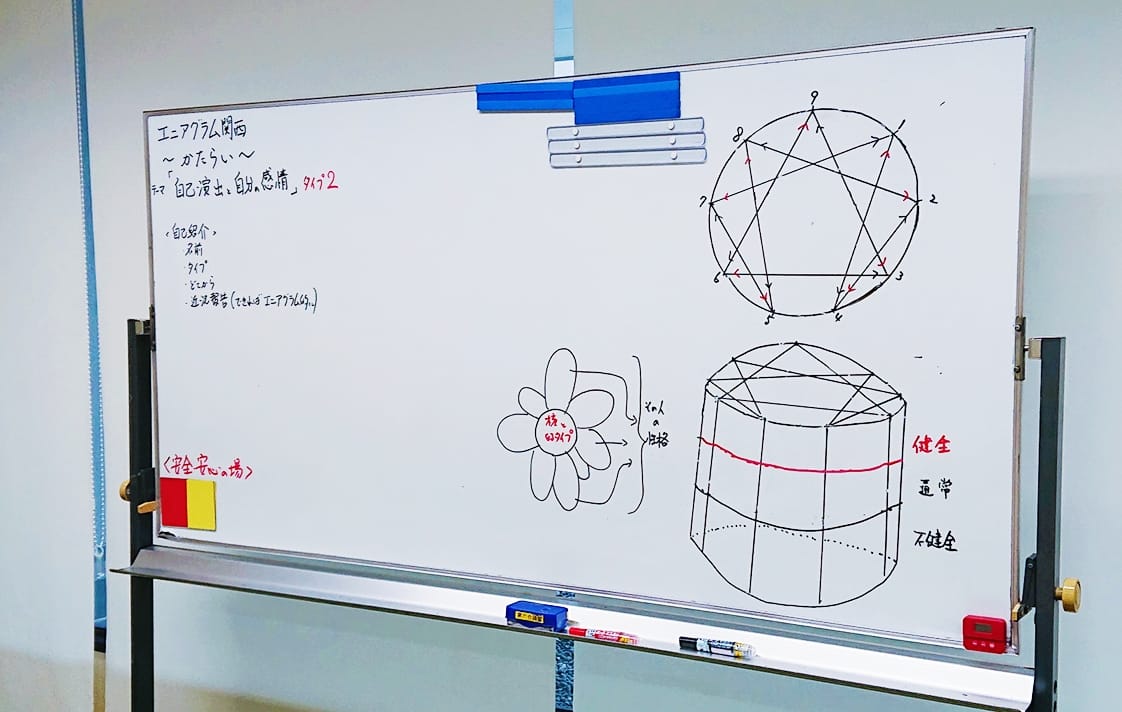 エニアグラム関西
～かたらい～
テーマ「自己演出と自分の感情」タイプ2
<自己紹介>
・名前
・タイプ
・どこから
・近況報告(できればエニアグラム的に)
<安全安心の場>
9
8
1
7
2
6
3
5
4
核と
タイプ
その人
の
性格
健全
通常
不健全